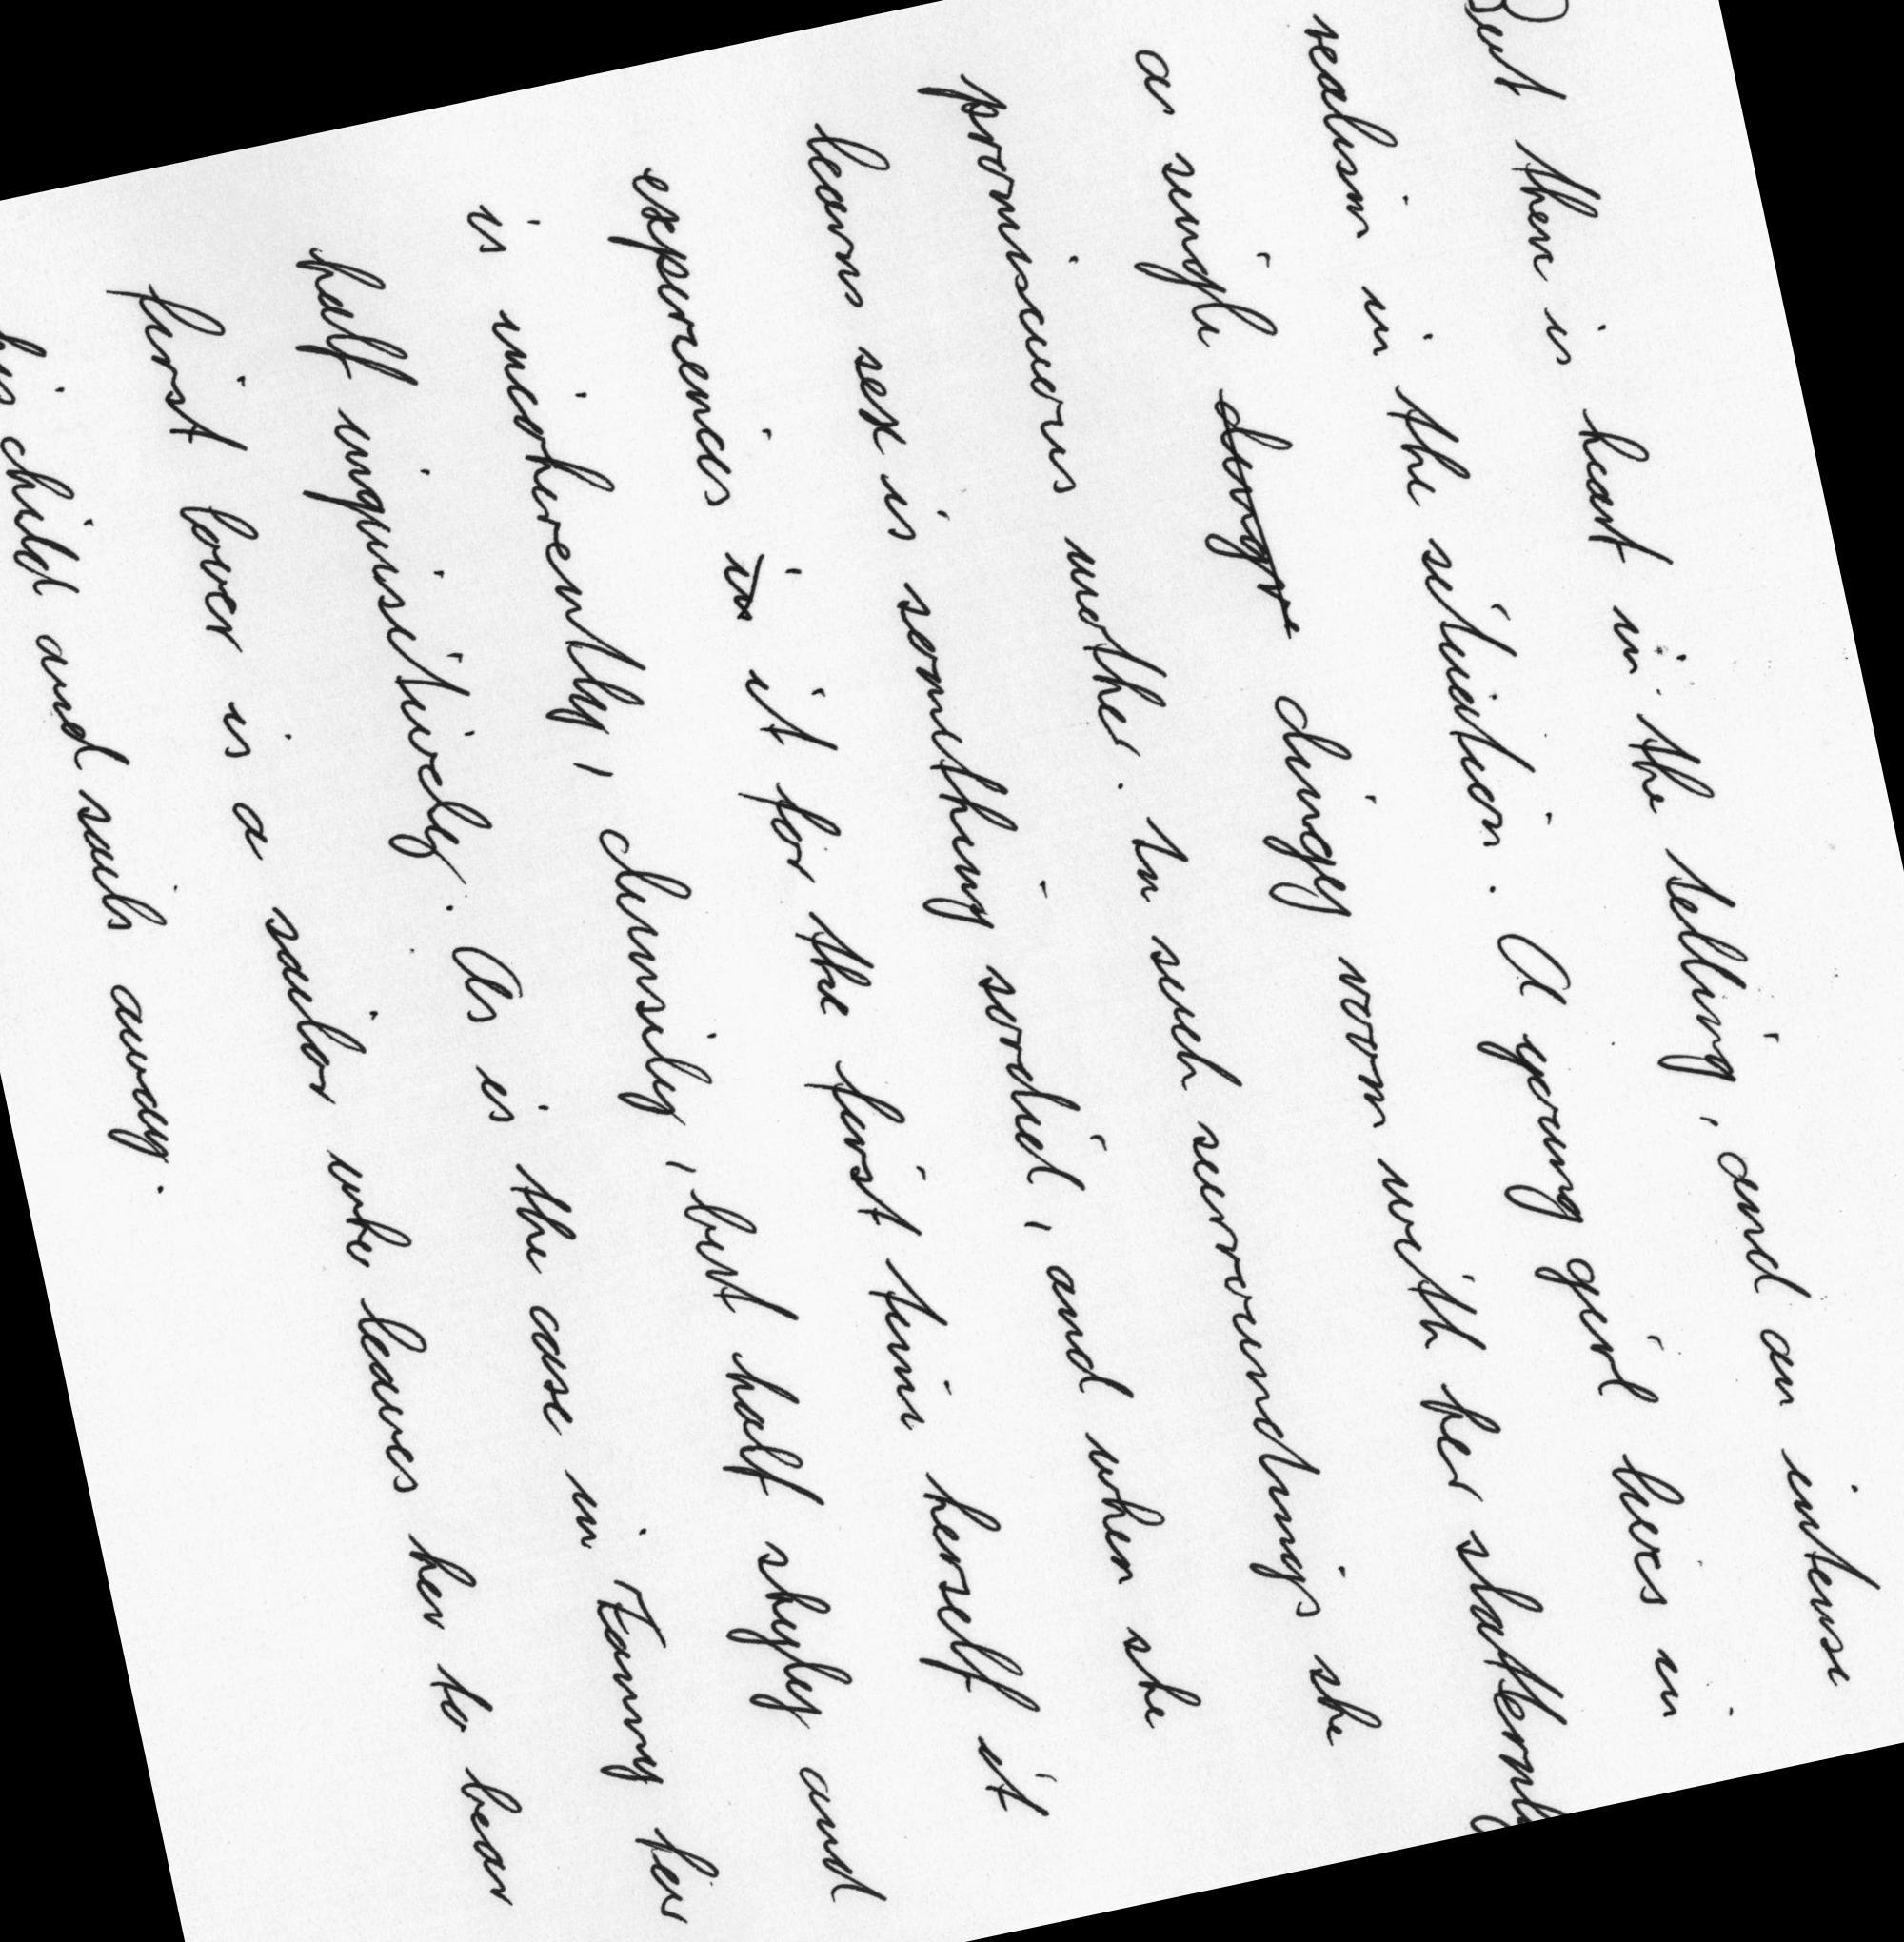 But there is heart in the telling, and an intense
realism in the situation. A young girl lives in
a single dingy room with her slatternly
promiscuous mother. In such surroundings she
learns sex is something sordid, and when she
experiences it for the first time herself it
is incoherently, clumsily, but half shyly and
half inquisitively. As is the case in Fanny her
first lover is a sailor who leaves her to bear
his child and sails away.